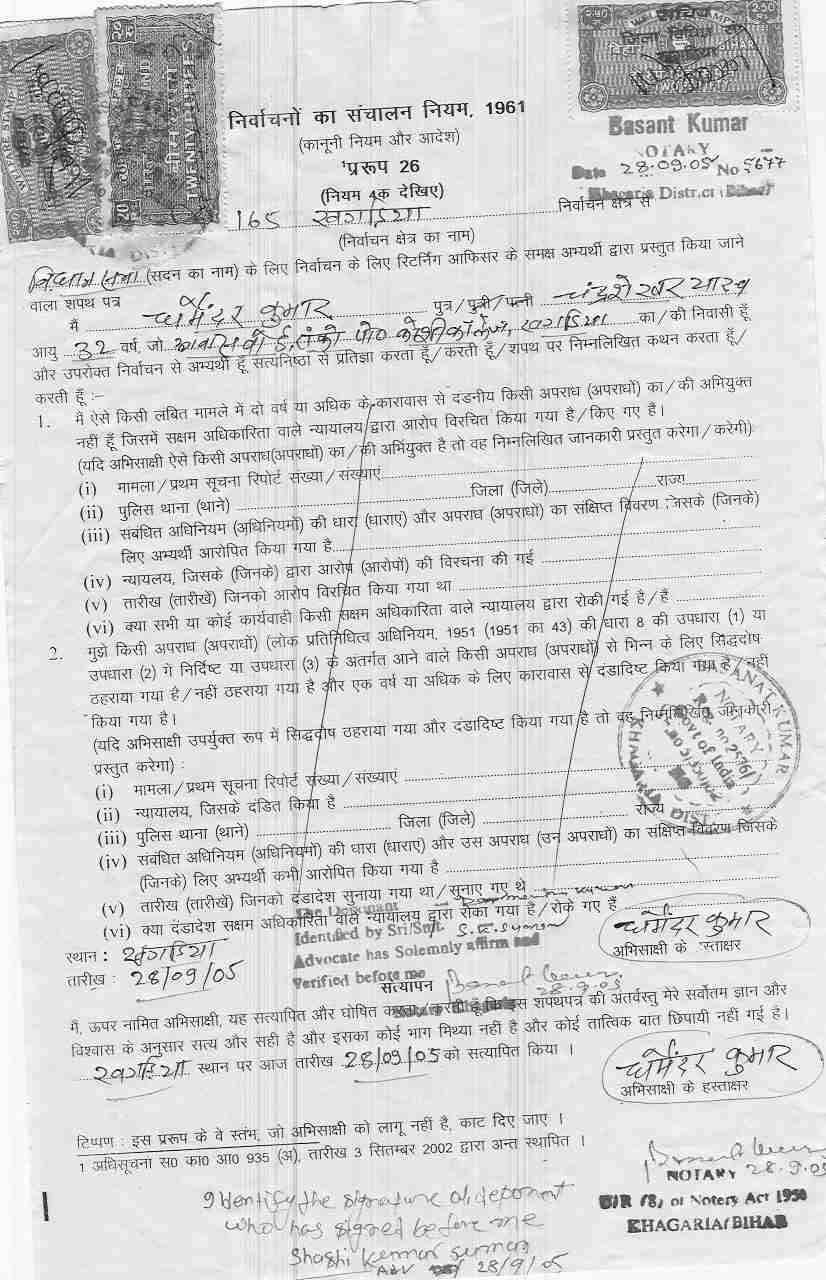 बिहार
BIHAR
2.50
20
बीस रुपये
TWENTY RUPEES
सचिव
Basant Kumar
NOTARY
Date 28.09.05 No 5677
Khagaria District (Bihar)
निर्वाचनों का संचालन नियम, 1961
(कानूनी नियम और आदेश)
¹प्ररूप 26
(नियम 4क देखिए)
165 खगड़िया निर्वाचन क्षेत्र से
(निर्वाचन क्षेत्र का नाम)
विधान सभा (सदन का नाम) के लिए निर्वाचन के लिए रिटर्निंग आफिसर के समक्ष अभ्यर्थी द्वारा प्रस्तुत किया जाने
वाला शपथ पत्र
मैं धर्मेंदर कुमार पुत्र/पुत्री/पत्नी चंद्रशेखर यादव
आयु 32 वर्ष, जो पो० कोशी कॉलेज, खगड़िया का/की निवासी हूँ
और उपरोक्त निर्वाचन से अभ्यर्थी हूँ सत्यनिष्ठा से प्रतिज्ञा करता हूँ/करती हूँ/शपथ पर निम्नलिखित कथन करता हूँ/
करती हूँ :-
1. मैं ऐसे किसी लंबित मामले में दो वर्ष या अधिक के कारावास से दंडनीय किसी अपराध (अपराधों) का/की अभियुक्त
नहीं हूँ जिसमें सक्षम अधिकारिता वाले न्यायालय द्वारा आरोप विरचित किया गया है/किए गए हैं।
(यदि अभिसाक्षी ऐसे किसी अपराध(अपराधों) का/की अभियुक्त है तो वह निम्नलिखित जानकारी प्रस्तुत करेगा/करेगी)
(i) मामला/प्रथम सूचना रिपोर्ट संख्या/संख्याएं
(ii) पुलिस थाना (थाने) जिला (जिले) राज्य
(iii) संबंधित अधिनियम (अधिनियमों) की धारा (धाराएं) और अपराध (अपराधों) का संक्षिप्त विवरण जिसके (जिनके)
लिए अभ्यर्थी आरोपित किया गया है
(iv) न्यायलय, जिसके (जिनके) द्वारा आरोप (आरोपों) की विरचना की गई
(v) तारीख (तारीखें) जिनको आरोप विरचित किया गया था
(vi) क्या सभी या कोई कार्यवाही किसी सक्षम अधिकारिता वाले न्यायालय द्वारा रोकी गई है/हैं
2. मुझे किसी अपराध (अपराधों) (लोक प्रतिनिधित्व अधिनियम, 1951 (1951 का 43) की धारा 8 की उपधारा (1) या
उपधारा (2) में निर्दिष्ट या उपधारा (3) के अंतर्गत आने वाले किसी अपराध (अपराधों) से भिन्न के लिए सिद्धदोष
ठहराया गया है/नहीं ठहराया गया है और एक वर्ष या अधिक के लिए कारावास से दंडादिष्ट किया गया है/नहीं
किया गया है।
(यदि अभिसाक्षी उपर्युक्त रूप में सिद्धदोष ठहराया गया और दंडादिष्ट किया गया है तो वह निम्नलिखित जानकारी
प्रस्तुत करेगा) :
(i) मामला/प्रथम सूचना रिपोर्ट संख्या/संख्याएं
(ii) न्यायालय, जिसके दंडित किया है
(iii) पुलिस थाना (थाने) जिला (जिले) राज्य
(iv) संबंधित अधिनियम (अधिनियमों) की धारा (धाराएं) और उस अपराध (उन अपराधों) का संक्षिप्त विवरण जिसके
(जिनके) लिए अभ्यर्थी कभी आरोपित किया गया है
(v) तारीख (तारीखें) जिनको दंडादेश सुनाया गया था/सुनाए गए थे
(vi) क्या दंडादेश सक्षम अधिकारिता वाले न्यायालय द्वारा रोका गया है/रोके गए हैं
BASANAT KUMAR
NOTARY
Govt of India
The Deponant
Identified by Sri/Smt. S. K. Suman
Advocate has Solemnly affirm and
Verified before me
28.9.05
स्थान : खगड़िया
तारीख : 28/09/05
धर्मेंदर कुमार
अभिसाक्षी के हस्ताक्षर
सत्यापन
मैं, ऊपर नामित अभिसाक्षी, यह सत्यापित और घोषित करता/करती हूँ कि इस शपथपत्र की अंतर्वस्तु मेरे सर्वोतम ज्ञान और
विश्वास के अनुसार सत्य और सही है और इसका कोई भाग मिथ्या नहीं है और कोई तात्विक बात छिपायी नहीं गई है।
खगड़िया स्थान पर आज तारीख 28/09/05 को सत्यापित किया ।
धर्मेंदर कुमार
अभिसाक्षी के हस्ताक्षर
टिप्पण : इस प्ररूप के वे स्तंभ, जो अभिसाक्षी को लागू नहीं है, काट दिए जाए ।
1 अधिसूचना स0 का0 आ0 935 (अ), तारीख 3 सितम्बर 2002 द्वारा अन्त स्थापित ।
NOTARY 28.9.05
U/R (8) of Notery Act 1956
KHAGARIA/BIHAR
I Identify the signature of deponent
who has signed before me
Shashi Kumar Suman
Adv 28/9/05